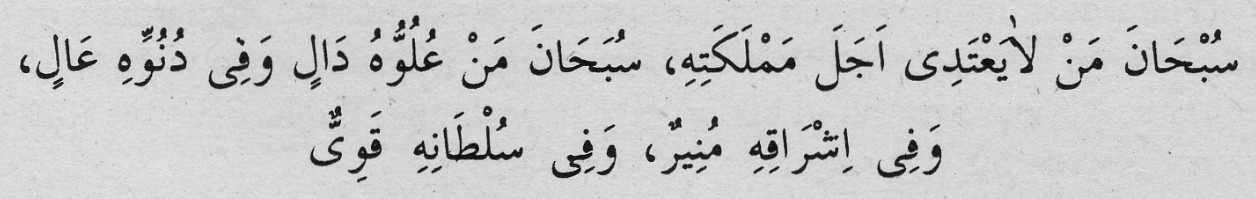 سُبْحَانَ مَنْ لاٰيَعْتَدِى اَجَلَ مَمْلَكَتِهِ، سُبَحَانَ مَنْ عُلُوُّهُ دَالٍ وَفِى دُنُوِّهِ عَالٍ،
وَفِى اِشْرَاقِهِ مُنِيرٌ، وَفِى سُلْطَانِهِ قَوِىٌّ